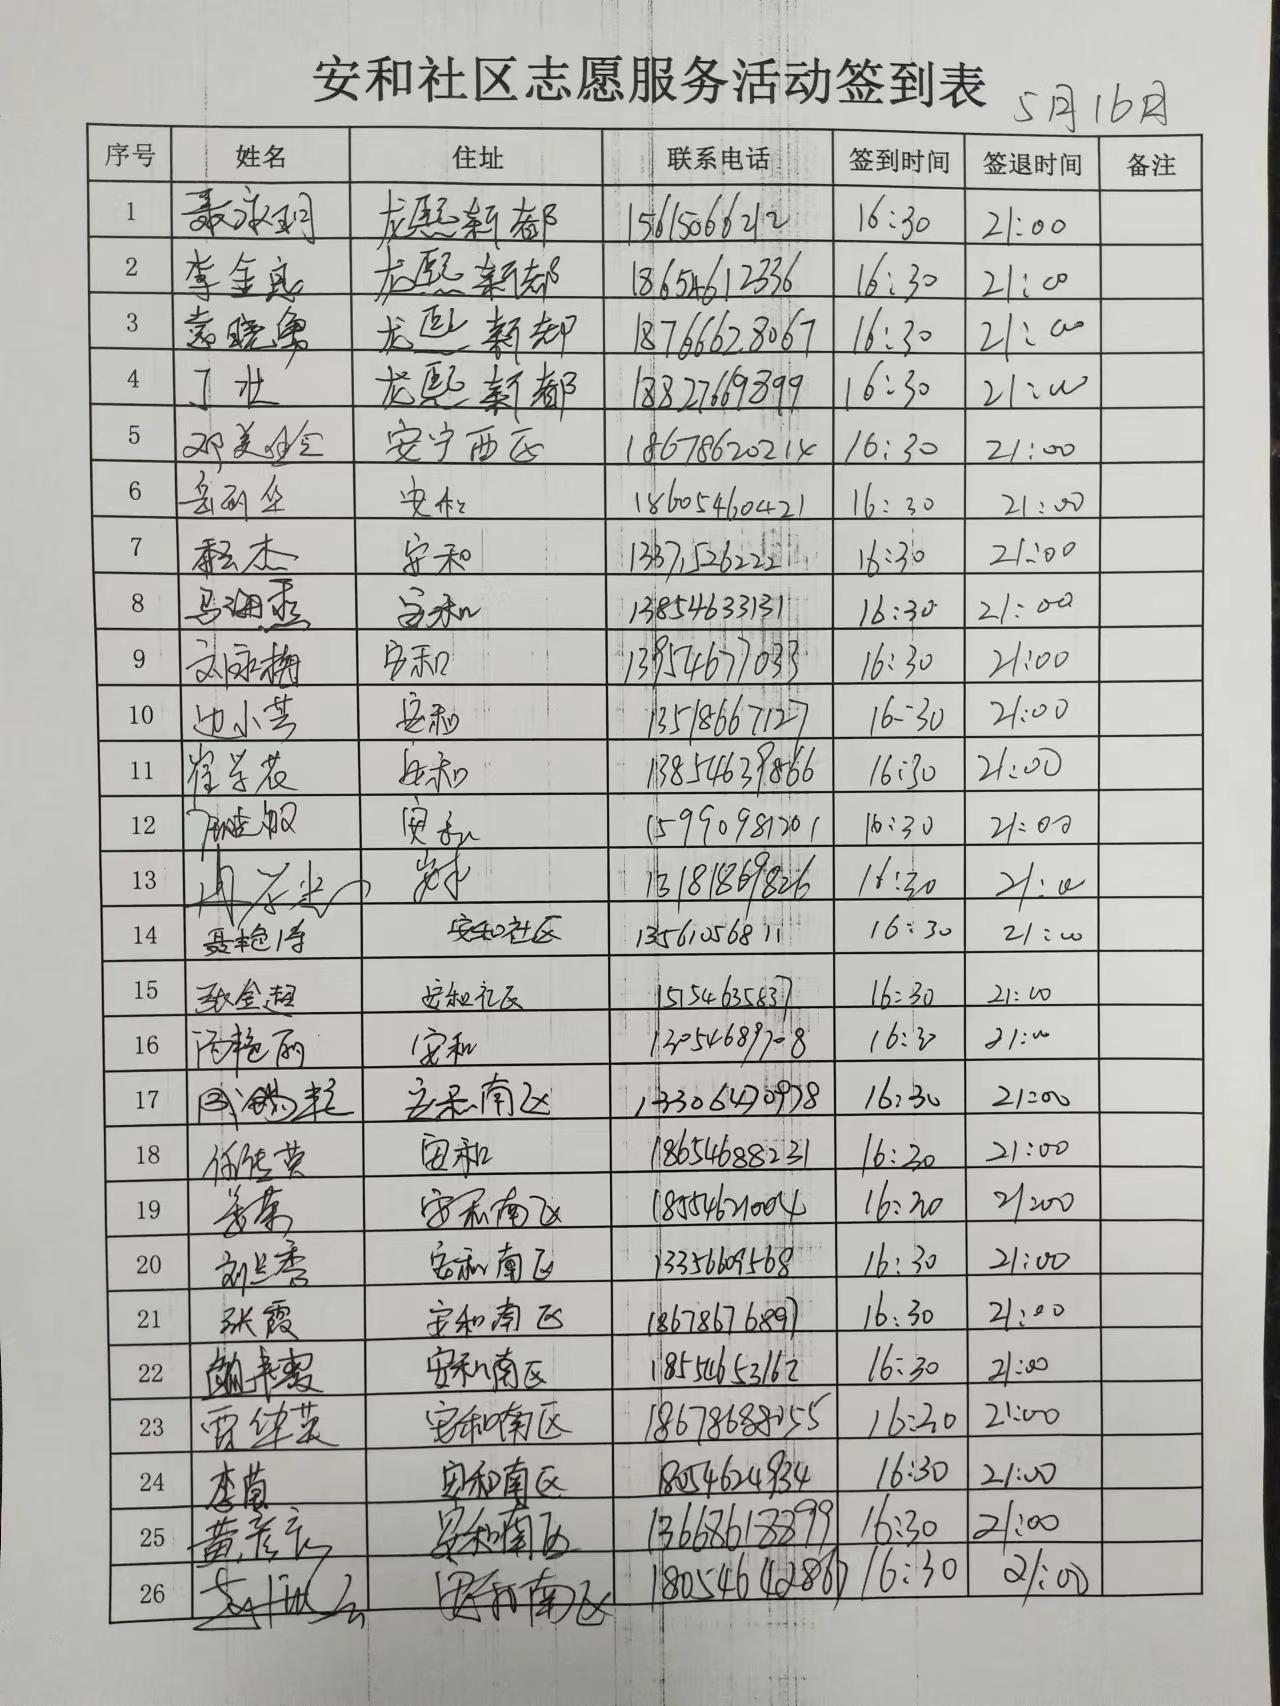 安和社区志愿服务活动签到表 5月16日
序号 姓名 住址 联系电话 签到时间 签退时间 备注
1 龙熙新都 15615066212 16:30 21:00
2 李金良 龙熙新都 18654612336 16:30 21:00
3 袁晓勇 龙熙新都 18766628067 16:30 21:00
4 丁壮 龙熙新都 18827669899 16:30 21:00
5 邓美 安宁西区 18678620214 16:30 21:00
6 安和 18605460421 16:30 21:00
7 程杰 安和 13371526222 16:30 21:00
8 马海燕 安和 13854633131 16:30 21:00
9 刘咏梅 安和 13954677033 16:30 21:00
10 边小芸 安和 13518667127 16:30 21:00
11 崔学花 安和 13854639866 16:30 21:00
12 安和 15990981201 16:30 21:00
13 安和 13181869826 16:30 21:00
14 聂艳 安和社区 13561056811 16:30 21:00
15 张金超 安和社区 15154635837 16:30 21:00
16 艳丽 安和 13054689708 16:30 21:00
17 安和南区 13306470978 16:30 21:00
18 任佳英 安和 18654688231 16:30 21:00
19 姜荣 安和南区 18554621004 16:30 21:00
20 刘兰香 安和南区 13356609568 16:30 21:00
21 张霞 安和南区 18678676897 16:30 21:00
22 安和南区 18554653162 16:30 21:00
23 贾华英 安和南区 18678688055 16:30 21:00
24 李萸 安和南区 18054624934 16:30 21:00
25 黄彦 安和南区 13668618899 16:30 21:00
26 安和南区 18054642867 16:30 21:00